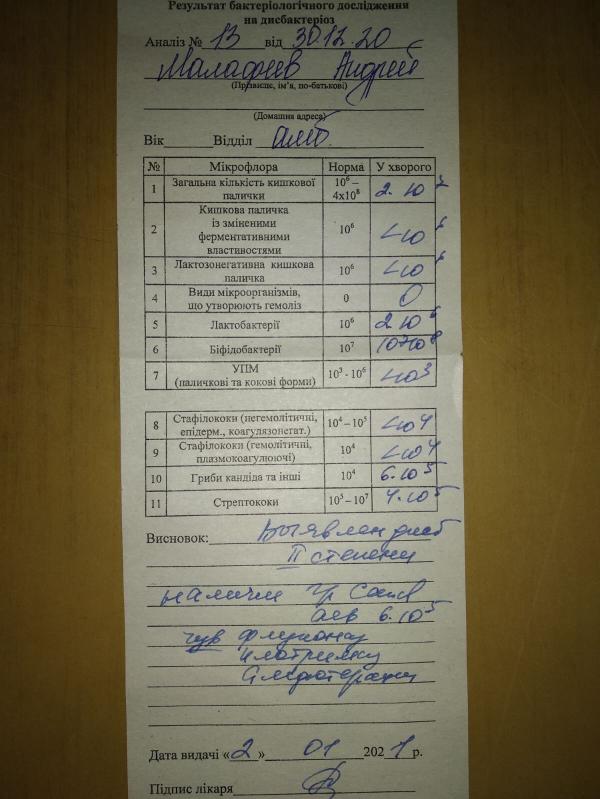 Результат бактеріологічного дослідження
на дисбактеріоз
Аналіз № 13 від 30.12.20
Малафеев Андрей
(Прізвище, ім'я, по-батькові)
(Домашня адреса)
Вік Відділ амб.
№ Мікрофлора Норма У хворого
1 Загальна кількість кишкової палички 10⁶ – 4х10⁸ 2·10⁷
2 Кишкова паличка із зміненими ферментативними властивостями 10⁶ <10⁶
3 Лактозонегативна кишкова паличка 10⁶ <10⁶
4 Види мікроорганізмів, що утворюють гемоліз 0 0
5 Лактобактерії 10⁶ 2·10⁶
6 Біфідобактерії 10⁷ 10⁷10⁸
7 УПМ (паличкові та кокові форми) 10³ - 10⁶ <10³
8 Стафілококи (негемолітичні, епідерм., коагулязонегат.) 10⁴ – 10⁵ <10⁴
9 Стафілококи (гемолітичні, плазмокоагулюючі) 10⁴ <10⁴
10 Гриби кандіда та інші 10⁴ 6·10⁵
11 Стрептококи 10⁵ – 10⁷ 4·10⁵
Висновок: Выявлен дисб
II степени
наличие гр Cand
6·10⁵
чув флуконаз
клотримаз
Дата видачі «2» 01 2021 р.
Підпис лікаря